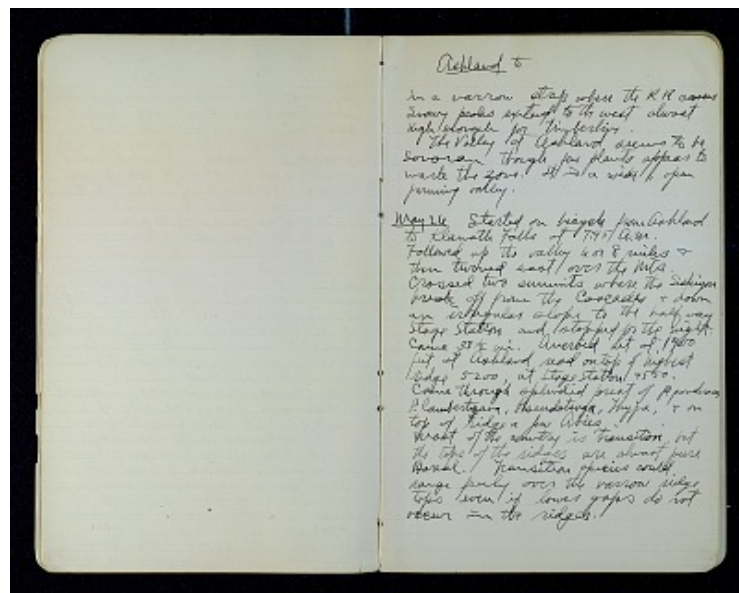 Ashland to
in a narrow strip where the R R crosses
Snowy peaks extend to the west almost
high enough for timberline.
The Valley of Ashland seems to be
Sonoran though few plants appear to
mark the zone. It is a wide open
farming valley.
May 26 Started on bicycle from Ashland
to Klamath Falls at A.M.
Followed up the valley 6 or 8 miles &
then turned east over the Mts.
Crossed two summits where the Siskiyou
break off from the Cascades & down
an irregular slope to the half way
Stage Station and stopped for the night.
Came mi. Aneroid set at 1900
feet at Ashland read on top of highest
ridge 5200, at Stage Station 4550.
Came through splendid forest of P. ponderosa,
P. Lambertiana, Pseudotsuga, Thuja, & on
top of ridge a few Abies.
Most of the country is Transition, but
the tops of the ridges are almost pure
Boreal. Transition species could
range freely over the narrow ridge
tops even if lower gaps do not
occur in the ridges.